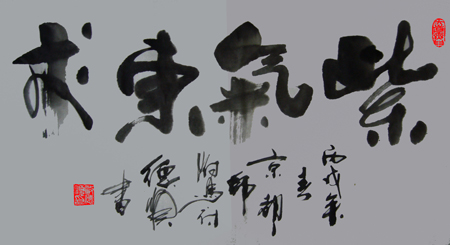 紫氣東來
丙戌年
春
京都
德賢
書